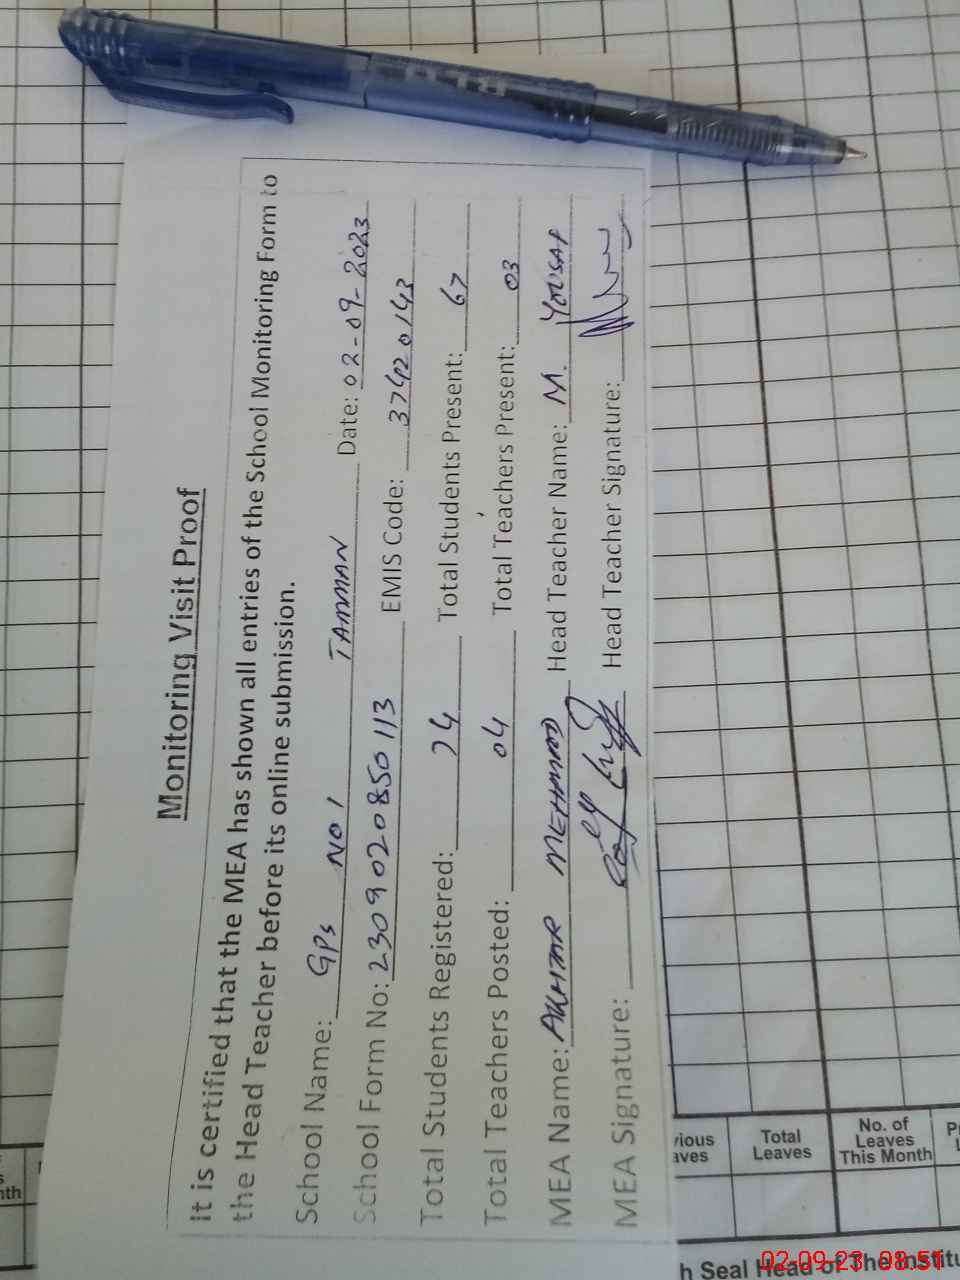 Monitoring Visit Proof
It is certified that the MEA has shown all entries of the School Monitoring Form to
the Head Teacher before its online submission.
School Name: GPS NO 1 TAMMAN Date: 02-09-2023
School Form No: 2309020850113 EMIS Code: 37420143
Total Students Registered: 74 Total Students Present: 67
Total Teachers Posted: 04 Total Teachers Present: 03
MEA Name: AKHTAR MEHMOOD Head Teacher Name: M. YOUSAF
MEA Signature: Head Teacher Signature:
Total
Leaves
No. of
Leaves
This Month
Seal Head of The
02-09-23 08:51